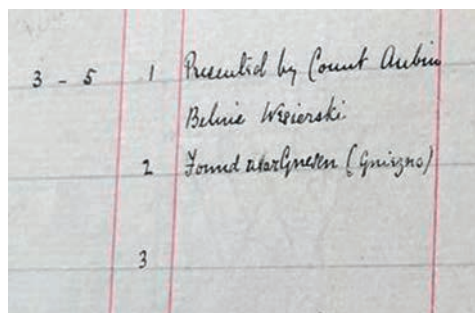 3 - 5 1 Presented by Count Aubin
Belina Węsierski.
2 Found near Gnesen (Gniezno)
3